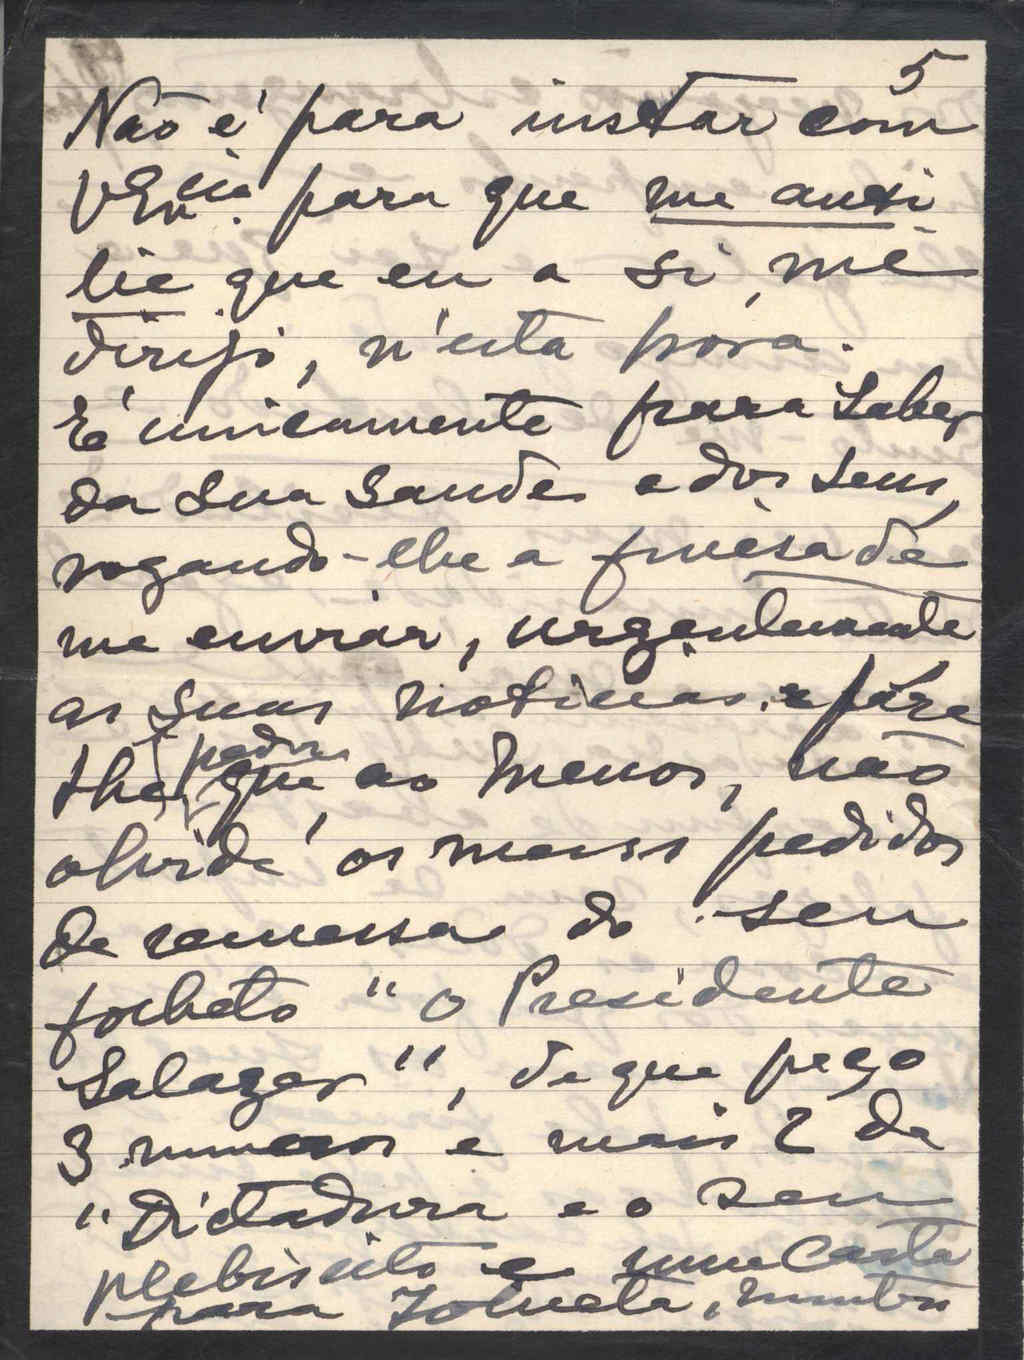 5
Não é para instar com
VExcia. para que me auxi
lie que eu a si, me
dirijo, n'esta hora.
É unicamente para Saber
da Sua Saude e dos Seus,
rogando-lhe a finêsa de
me enviar, urgentemente
as Suas noticias. e para
lhe pedir
que, ao menos, não
olvide os meus pedidos
de remessa do seu
folheto "O Presidente
Salazar", de que peço
3 numeros e mais 2 da
"Dictadura e o Seu
plebiscito e uma Carta
para